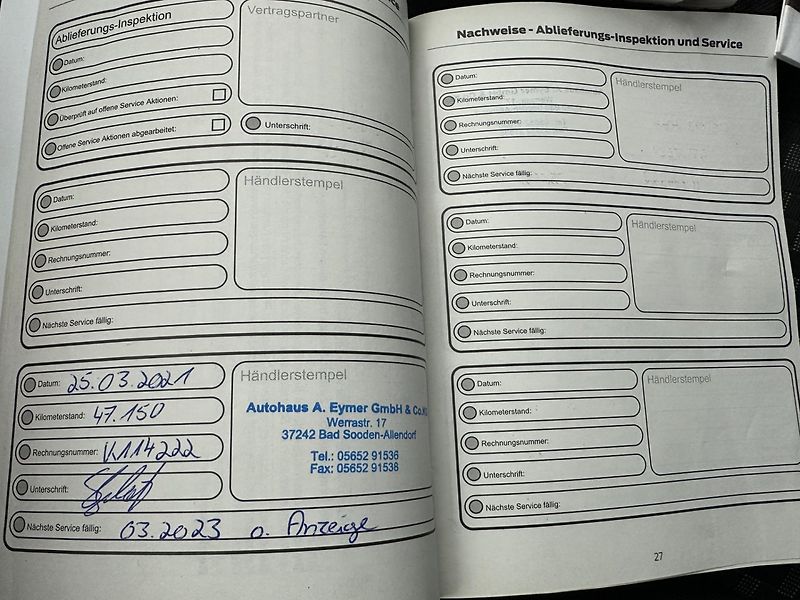 Ablieferungs-Inspektion
Datum:
Kilometerstand:
Überprüft auf offene Service Aktionen:
Offene Service Aktionen abgearbeitet:
Vertragspartner
Unterschrift:
Datum:
Kilometerstand:
Rechnungsnummer:
Unterschrift:
Nächste Service fällig:
Händlerstempel
Datum: 25.03.2021
Kilometerstand: 47.150
Rechnungsnummer:
Unterschrift:
Nächste Service fällig: 03.2023 o. Anzeige
Händlerstempel
Autohaus A. Eymer GmbH & Co.
Werrastr. 17
37242 Bad Sooden-Allendorf
Tel.: 05652 91536
Fax: 05652 91538
Nachweise - Ablieferungs-Inspektion und Service
Datum:
Kilometerstand:
Rechnungsnummer:
Unterschrift:
Nächste Service fällig:
Händlerstempel
Datum:
Kilometerstand:
Rechnungsnummer:
Unterschrift:
Nächste Service fällig:
Händlerstempel
Datum:
Kilometerstand:
Rechnungsnummer:
Unterschrift:
Nächste Service fällig:
Händlerstempel
27